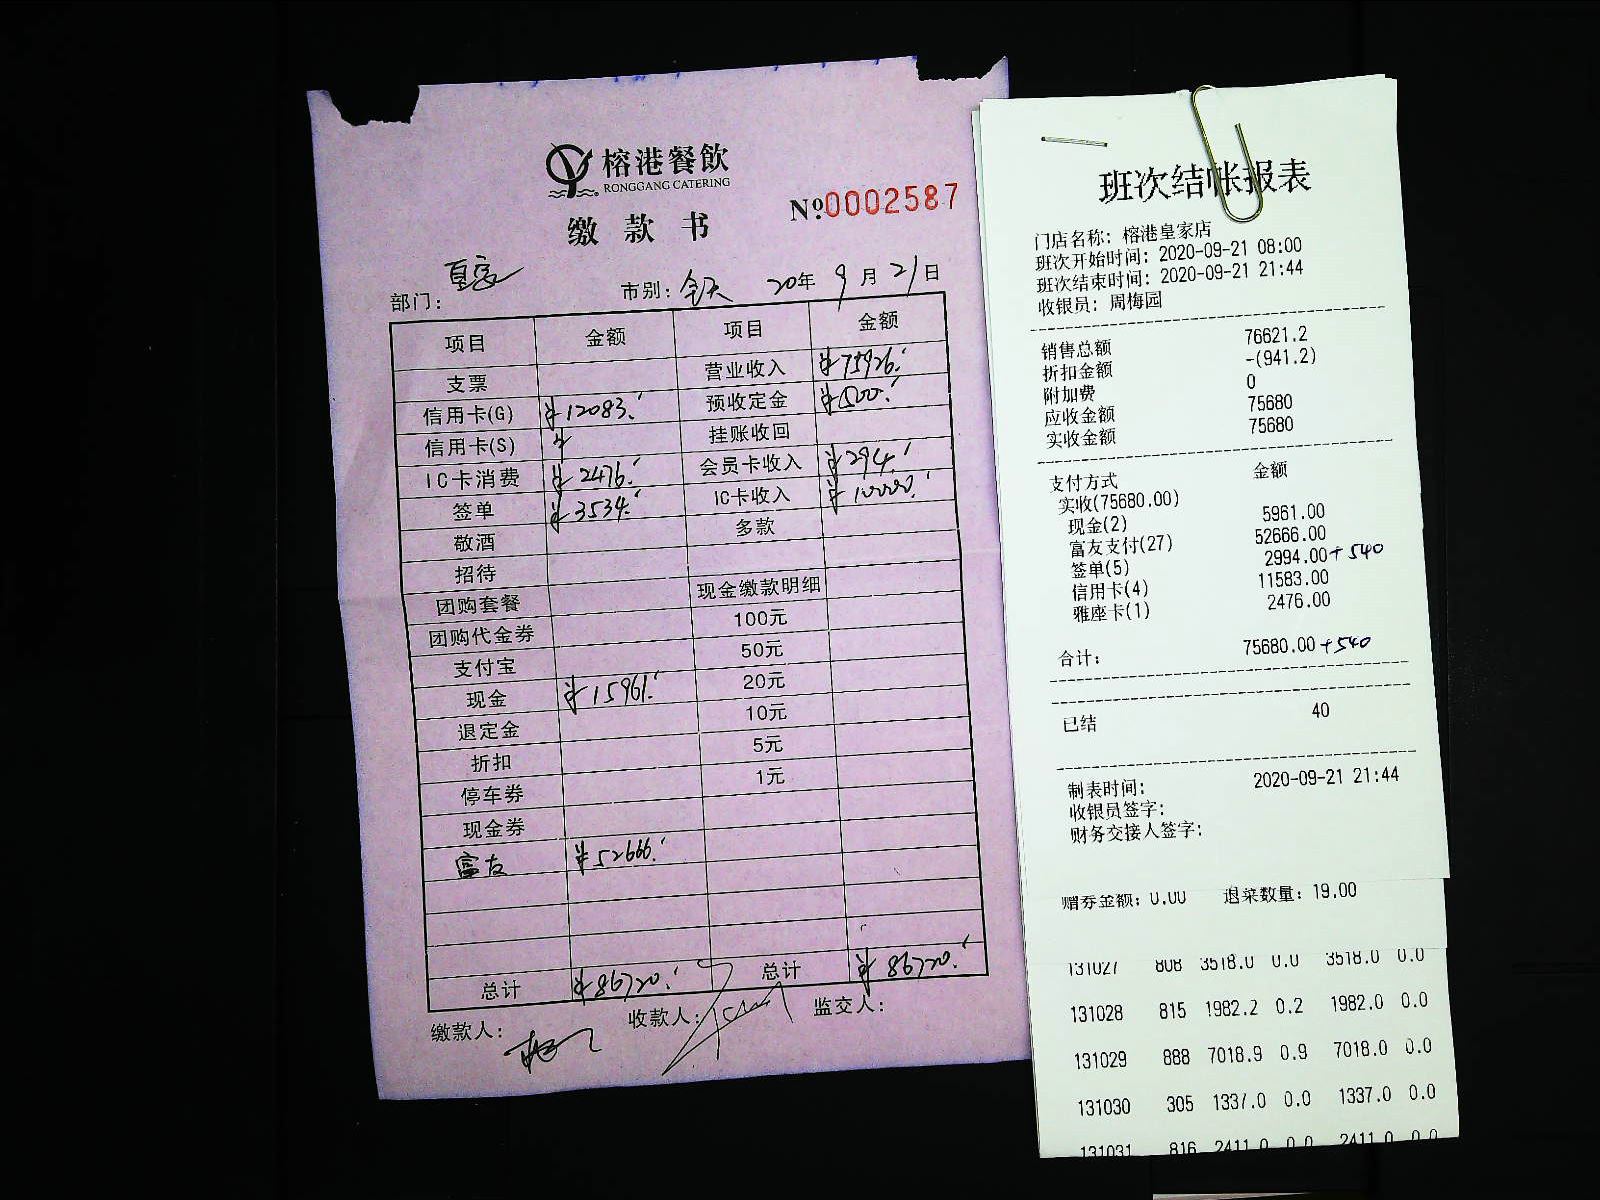 榕港餐飲
RONGGANG CATERING
缴款书
№0002587
部门: 皇家 市别: 全天 20年 9月 21日
项目 金额 项目 金额
支票 营业收入 ¥75926.
信用卡(G) ¥12083. 预收定金 ¥500.
信用卡(S) ¥ 挂账收回
IC卡消费 ¥2476. 会员卡收入 ¥294.
签单 ¥3534. IC卡收入 ¥10000.
敬酒 多款
招待
团购套餐 现金缴款明细
团购代金券 100元
支付宝 50元
现金 ¥15961. 20元
退定金 10元
折扣 5元
停车券 1元
现金券
富友 ¥52666.
总计 ¥86720. 总计 ¥86720.
缴款人: 收款人: 监交人:
班次结帐报表
门店名称: 榕港皇家店
班次开始时间: 2020-09-21 08:00
班次结束时间: 2020-09-21 21:44
收银员: 周梅园
销售总额 76621.2
折扣金额 -(941.2)
附加费 0
应收金额 75680
实收金额 75680
支付方式 金额
实收(75680.00)
现金(2) 5961.00
富友支付(27) 52666.00
签单(5) 2994.00+540
信用卡(4) 11583.00
雅座卡(1) 2476.00
合计: 75680.00+540
已结 40
制表时间: 2020-09-21 21:44
收银员签字:
财务交接人签字:
赠券金额: 0.00 退菜数量: 19.00
131027 808 3518.0 0.0 3518.0 0.0
131028 815 1982.2 0.2 1982.0 0.0
131029 888 7018.9 0.9 7018.0 0.0
131030 305 1337.0 0.0 1337.0 0.0
131031 816 2411.0 0.0 2411.0 0.0